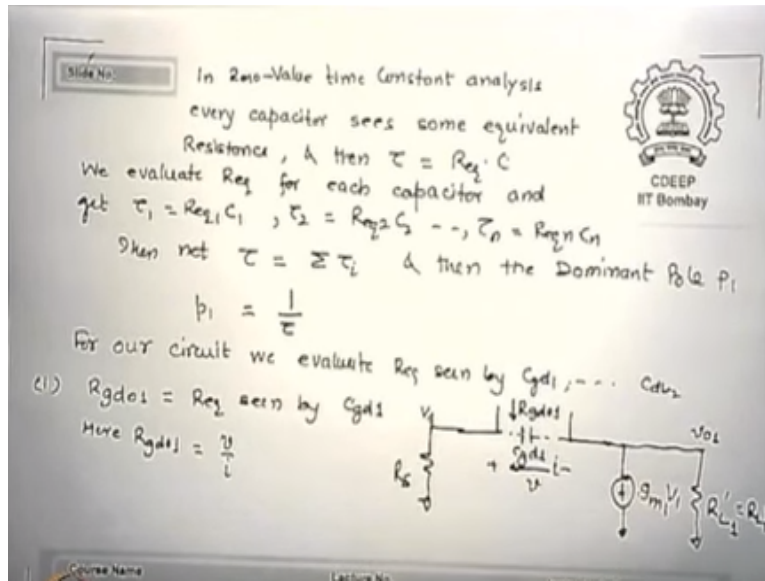 Slide No:
In Zero-Value time Constant analysis
every capacitor sees some equivalent
Resistance, & then τ = Req · C
CDEEP
IIT Bombay
We evaluate Req for each capacitor and
get τ1 = Req1 C1 , τ2 = Req2 C2 - -, τn = Reqn Cn
Then net τ = Σ τi & then the Dominant Pole P1
p1 = 1/τ
For our circuit we evaluate Req seen by Cgd1, - - - Cdb2
(1) Rgdo1 = Req seen by Cgd1
Here Rgdo1 = v/i
V1
↓Rgdo1
Vo1
Rs
Cgd1
+ v i -
gm1V1
R'L1 = RL
Course Name
Lecture No